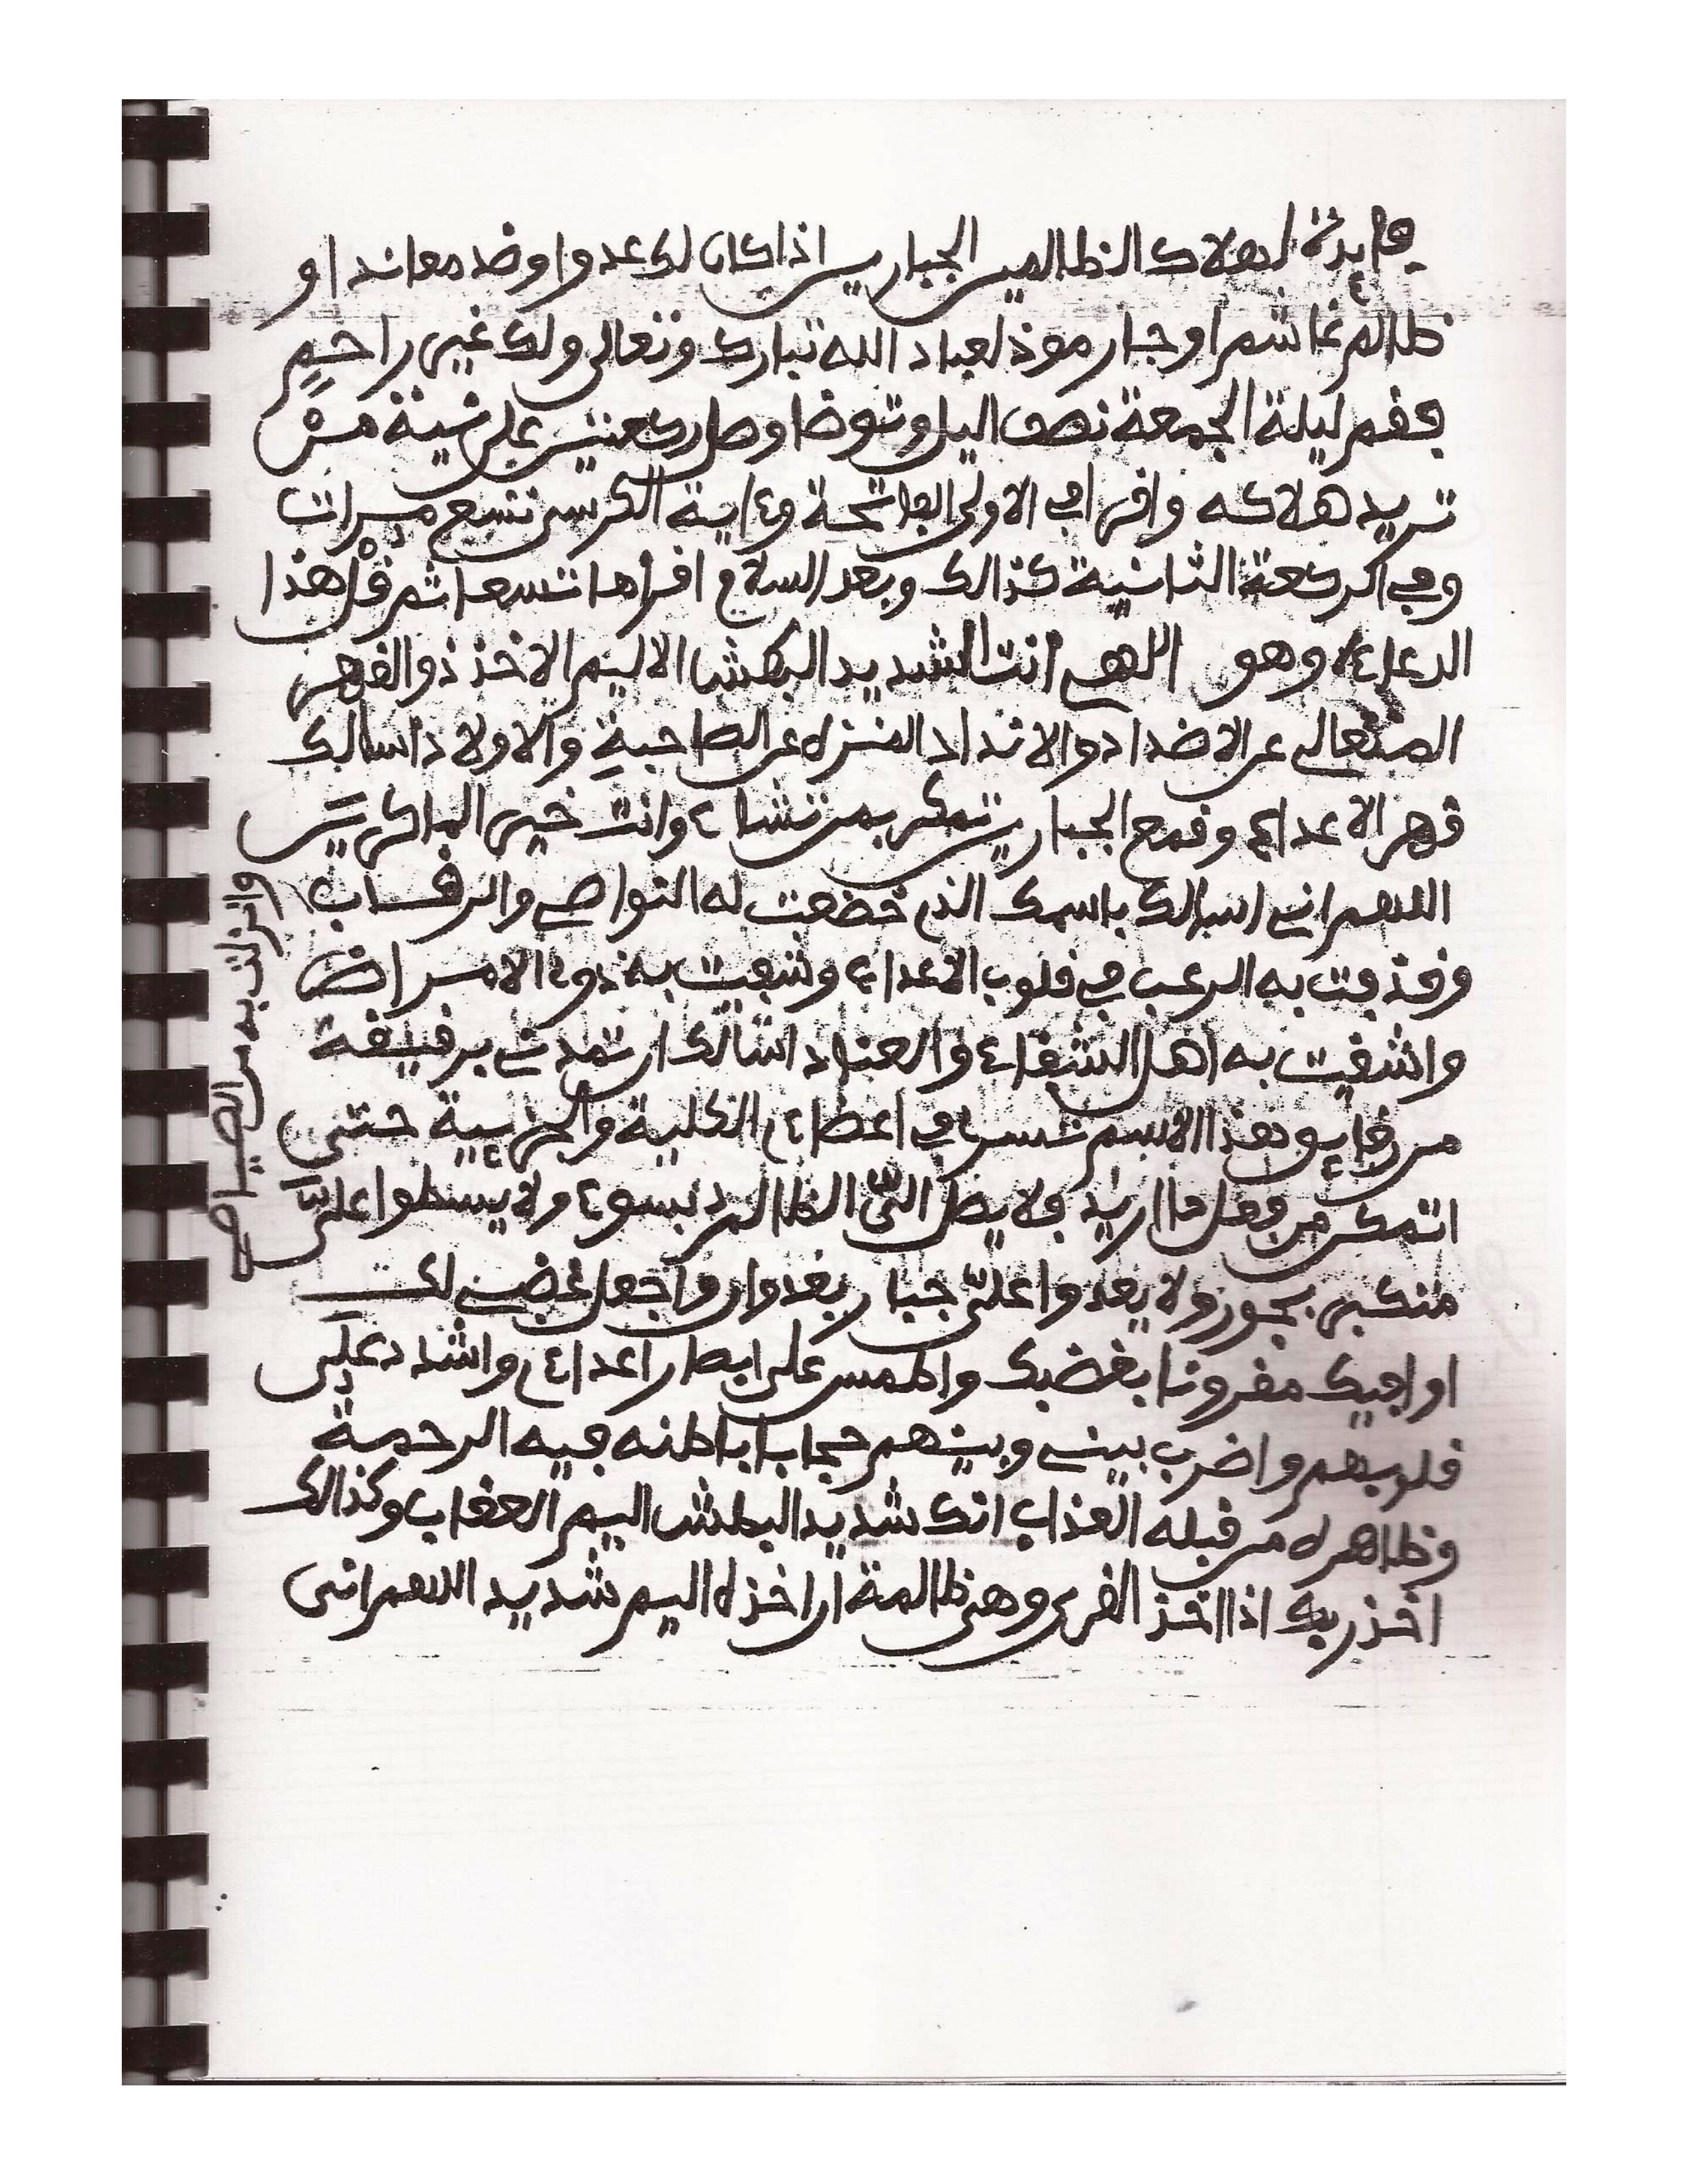 فايدة لهلاك الظالمين الجبارين اذا كان لك عدوا وضد معاند او
ظالم غاشم او جار موذ لعباد الله تبارك وتعالى ولك غير راحم
فقم ليلة الجمعة نصف اليل وتوضا وصل ركعتين على نية من
تريد هلاكه واقرا في الاولى الفاتحة وءاية الكرسي تسع مرات
وفي اكركعة الثانية كذالك وبعد السلام اقراها تسعا ثم قل هذا
الدعاء وهو اللهم انت الشديد البطش الاليم الاخذ ذو القهر
المتعالي عن الاضداد والانداد المنزه عن الصاحبة والاولاد اسالك
قهر الاعداء وقمع الجبارين تمكر بمن تشاء وانت خير الماكرين
اللهم اني اسالك باسمك الذي خضعت له النواصي والرقاب
وانزلت به من الصياصي
وقذفت به الرعب في قلوب الاعداء وشفيت به ذوء الامراض
واشقيت به اهل الشقاء والعناد اسالك ان تمدني برقيقة
من رقايق هذا الاسم تسري في اعضاء الكلية والجزءية حتى
اتمكن من فعل ما اريد فلا يصل الي الظالم بسوء ولا يسطوا علي
متكبر بجور ولا يعدوا علي جبار بعدوان واجعل غضبي لك
او فيك مقرونا بغضبك واطمس على ابصار اعداء واشدد على
قلوبهم واضرب بيني وبينهم حجابا باطنه فيه الرحمة
وظاهره من قبله العذاب انك شديد البطش اليم العقاب وكذالك
اخذ ربك اذا اخذ القرى وهي ظالمة ان اخذه اليم شديد اللهم اني